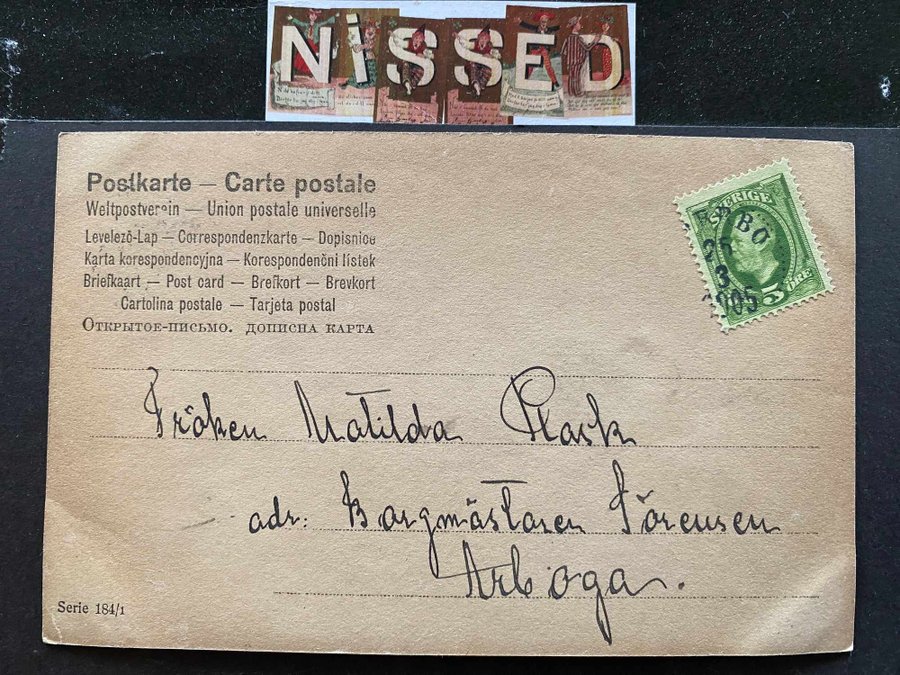 NiSSED
Postkarte — Carte postale
Weltpostverein — Union postale universelle
Levelező-Lap — Correspondenzkarte — Dopisnice
Karta korespondencyjna — Korespondenční lístek
Briefkaart — Post card — Brefkort — Brevkort
Cartolina postale — Tarjeta postal
Открытое-письмо. дописна карта
SVERIGE
26
3
1905
5 ÖRE
Fröken Matilda Flack
adr: Borgmästaren Sörensen
Arboga.
Serie 184/1